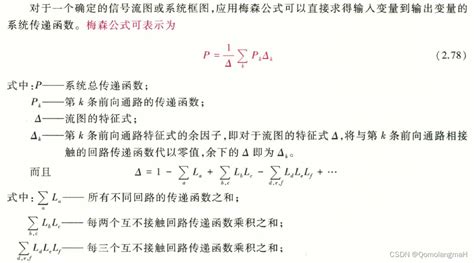 对于一个确定的信号流图或系统框图,应用梅森公式可以直接求得输入变量到输出变量的
系统传递函数。梅森公式可表示为
P = \frac{1}{Δ} \sum_{k} P_kΔ_k (2.78)
式中:P——系统总传递函数;
P_k——第 k 条前向通路的传递函数;
Δ——流图的特征式;
Δ_k——第 k 条前向通路特征式的余因子,即对于流图的特征式 Δ,将与第 k 条前向通路相接
触的回路传递函数代以零值,余下的 Δ 即为 Δ_k。
而且 Δ = 1 - \sum_{a} L_a + \sum_{b,c} L_bL_c - \sum_{d,e,f} L_dL_eL_f + ···
式中: \sum_{a} L_a —— 所有不同回路的传递函数之和;
\sum_{b,c} L_bL_c —— 每两个互不接触回路传递函数乘积之和;
\sum_{d,e,f} L_dL_eL_f —— 每三个互不接触回路传递函数乘积之和;
CSDN @QomolangmaH